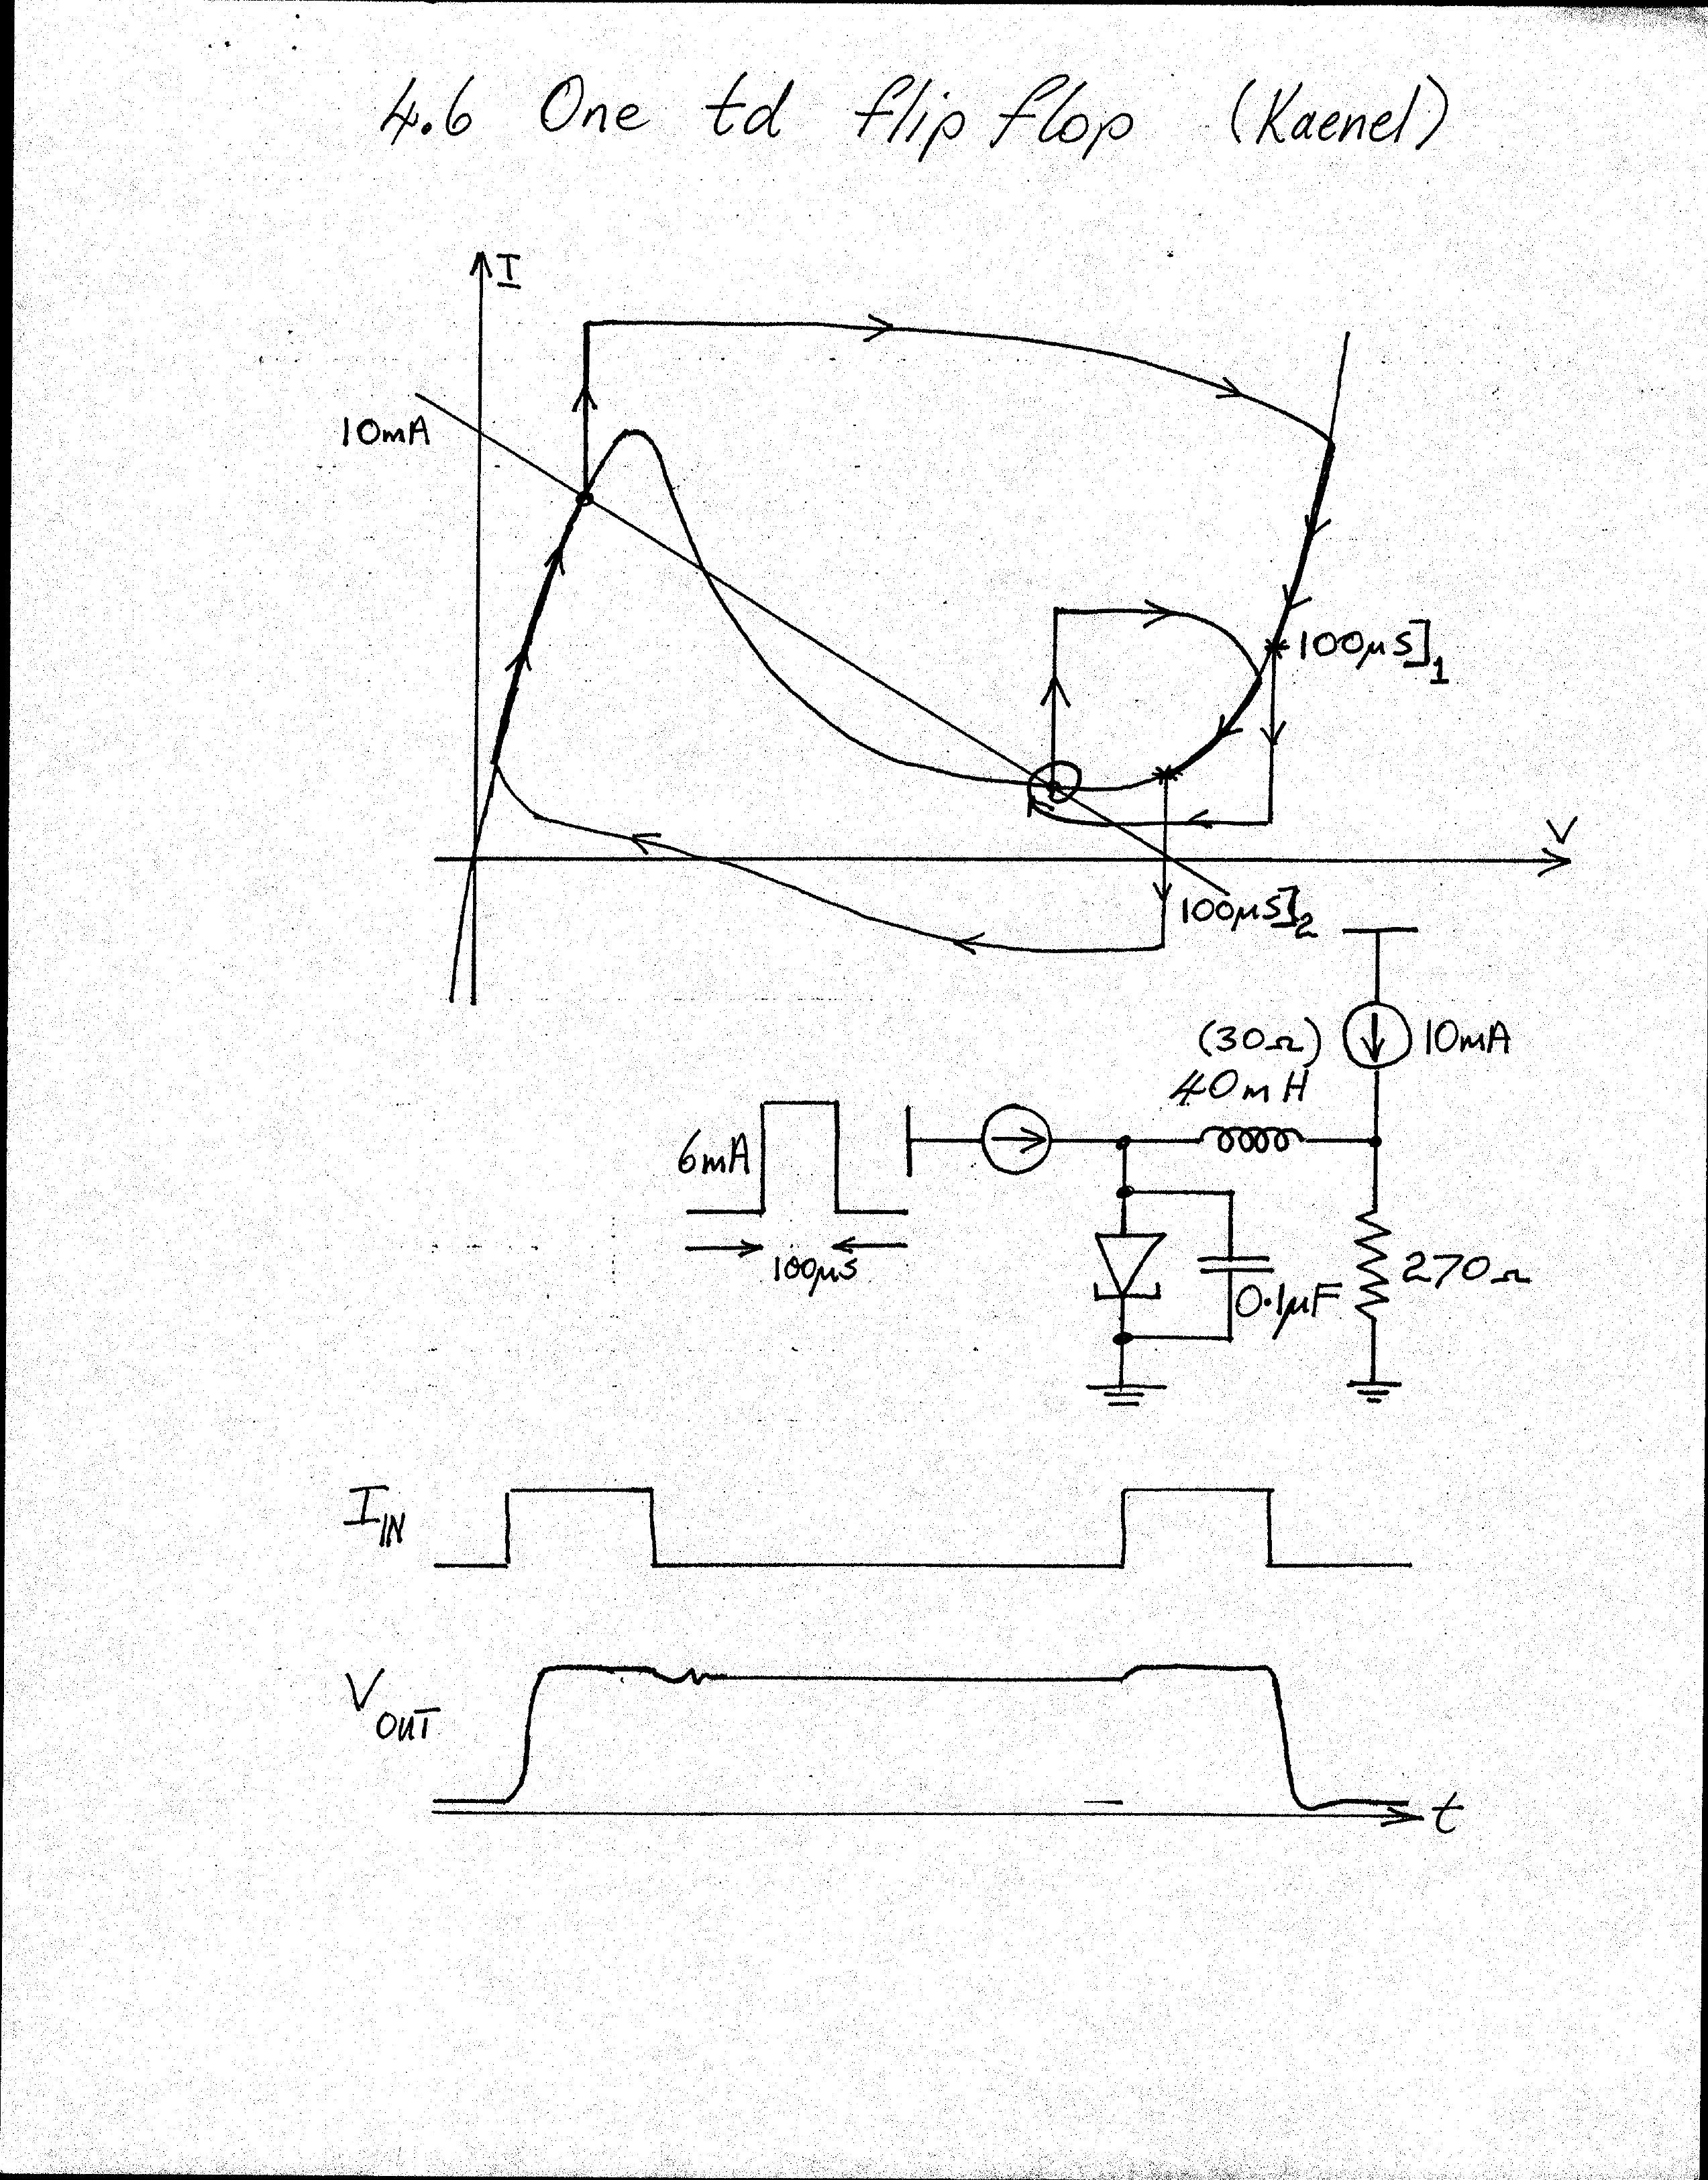 4.6 One td flip flop (Kaenel)
I
10mA
100μS]1
V
100μS]2
(30Ω) 10mA
40mH
6mA
100μs
0.1μF
270Ω
IIN
VOUT
t